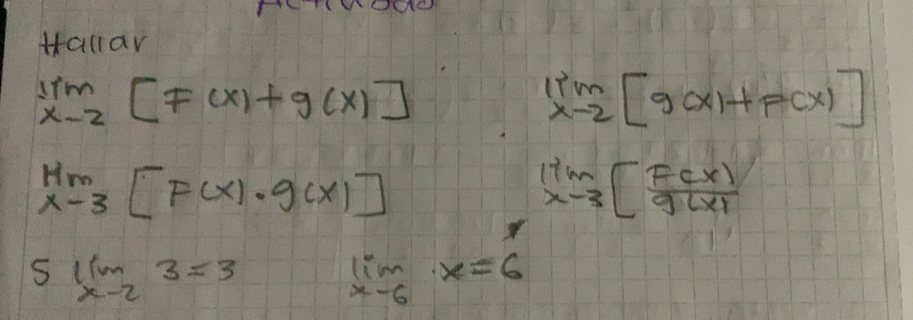 Actividad
Hallar
lim x-2 [F(x)+g(x)] lim x-2 [g(x)+F(x)]
lim x-3 [F(x).g(x)] lim x-3 [F(x)/g(x)
5 lim x-2 3=3 lim x-6 x=6